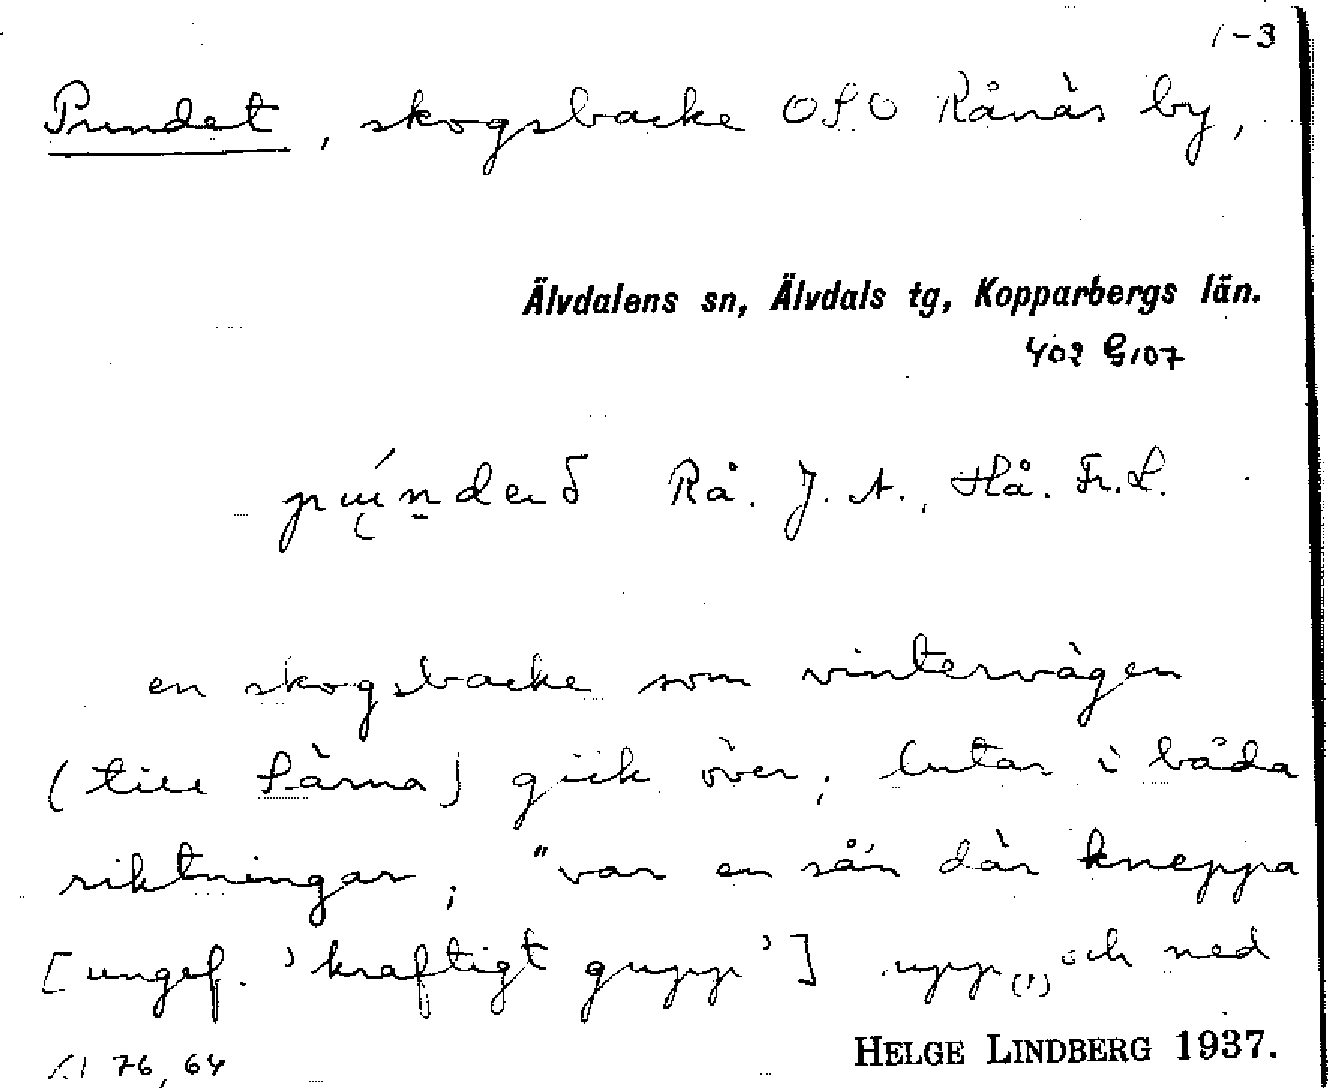 1-3
Pundet, skogsbacke OSO Rånäs by,
Älvdalens sn, Älvdals tg, Kopparbergs län.
402 G107
Rå. J. A., Hå. Fr. L.
en skogsbacke som vintervägen
(till Särna) gick över; lutar i båda
riktningar; "var en så'n där kneppa
[ungef. 'kraftigt gupp'] upp(!) och ned
76, 64
HELGE LINDBERG 1937.